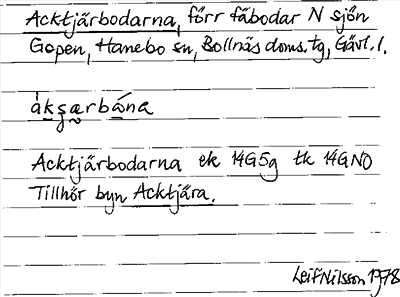 Acktjärbodarna, förr fäbodar N sjön
Gopen, Hanebo sn, Bollnäs doms. tg, Gävl. l.
áksærbána
Acktjärbodarna ek 14G5g tk 14GNO
Tillhör byn Acktjära.
Leif Nilsson 1978